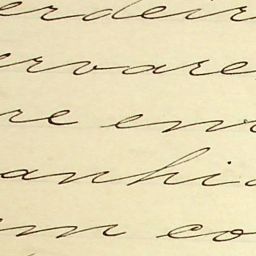 erdeir
ervare
re em
anhia
m co